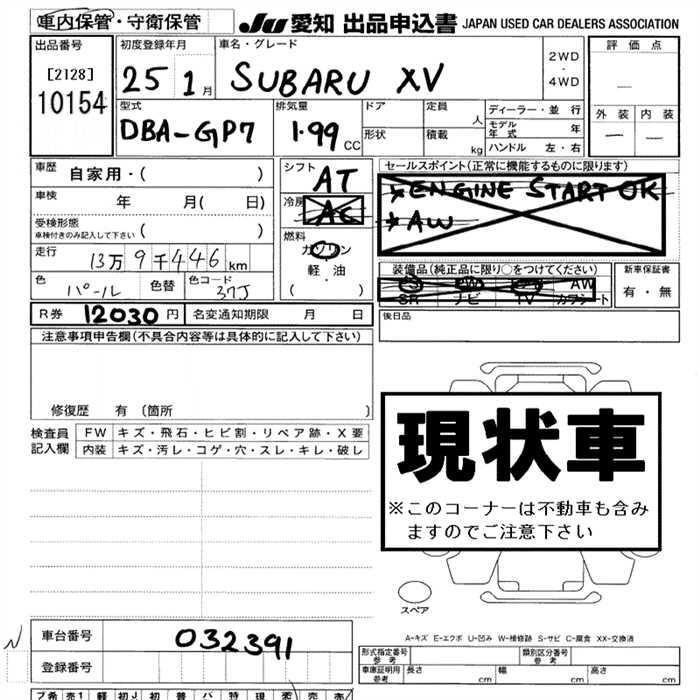 車内保管・守衛保管 JU 愛知 出品申込書 JAPAN USED CAR DEALERS ASSOCIATION
出品番号
[2128]
10154
初度登録年月
25 1月
車名・グレード
SUBARU XV
2WD
・
4WD
評価点
—
外装 内装
— —
型式
DBA-GP7
排気量
1.99 CC
ドア
形状
定員 人
積載 kg
ディーラー・並行
モデル年式 年
ハンドル 左・右
車歴 自家用・( )
車検 年 月( 日)
受検形態
車検付きのみ記入して下さい ( )
走行 13万9千446km
色 パール 色替 色コード 37J
シフト AT
冷房 AC
燃料
ガソリン
・
軽・油
( )
セールスポイント(正常に機能するものに限ります)
*ENGINE START OK
*AW
装備品(純正品に限り○をつけてください)
SR PW ナビ TV AW カワシート
新車保証書
有・無
R券 12030円 名変通知期限 月 日
後日品
注意事項申告欄(不具合内容等は具体的に記入して下さい)
修復歴 有 (箇所 )
検査員記入欄
FW キズ・飛石・ヒビ割・リペア跡・X要
内装 キズ・汚レ・コゲ・穴・スレ・キレ・破レ
現状車
※このコーナーは不動車も含み
ますのでご注意下さい
スペア
A-キズ E-エクボ U-凹み W-補修跡 S-サビ C-腐食 XX-交換済
車台番号 032391
登録番号
形式指定番号 参考
類別区分番号 参考
車庫証明用参考 長さ cm 幅 cm 高さ cm